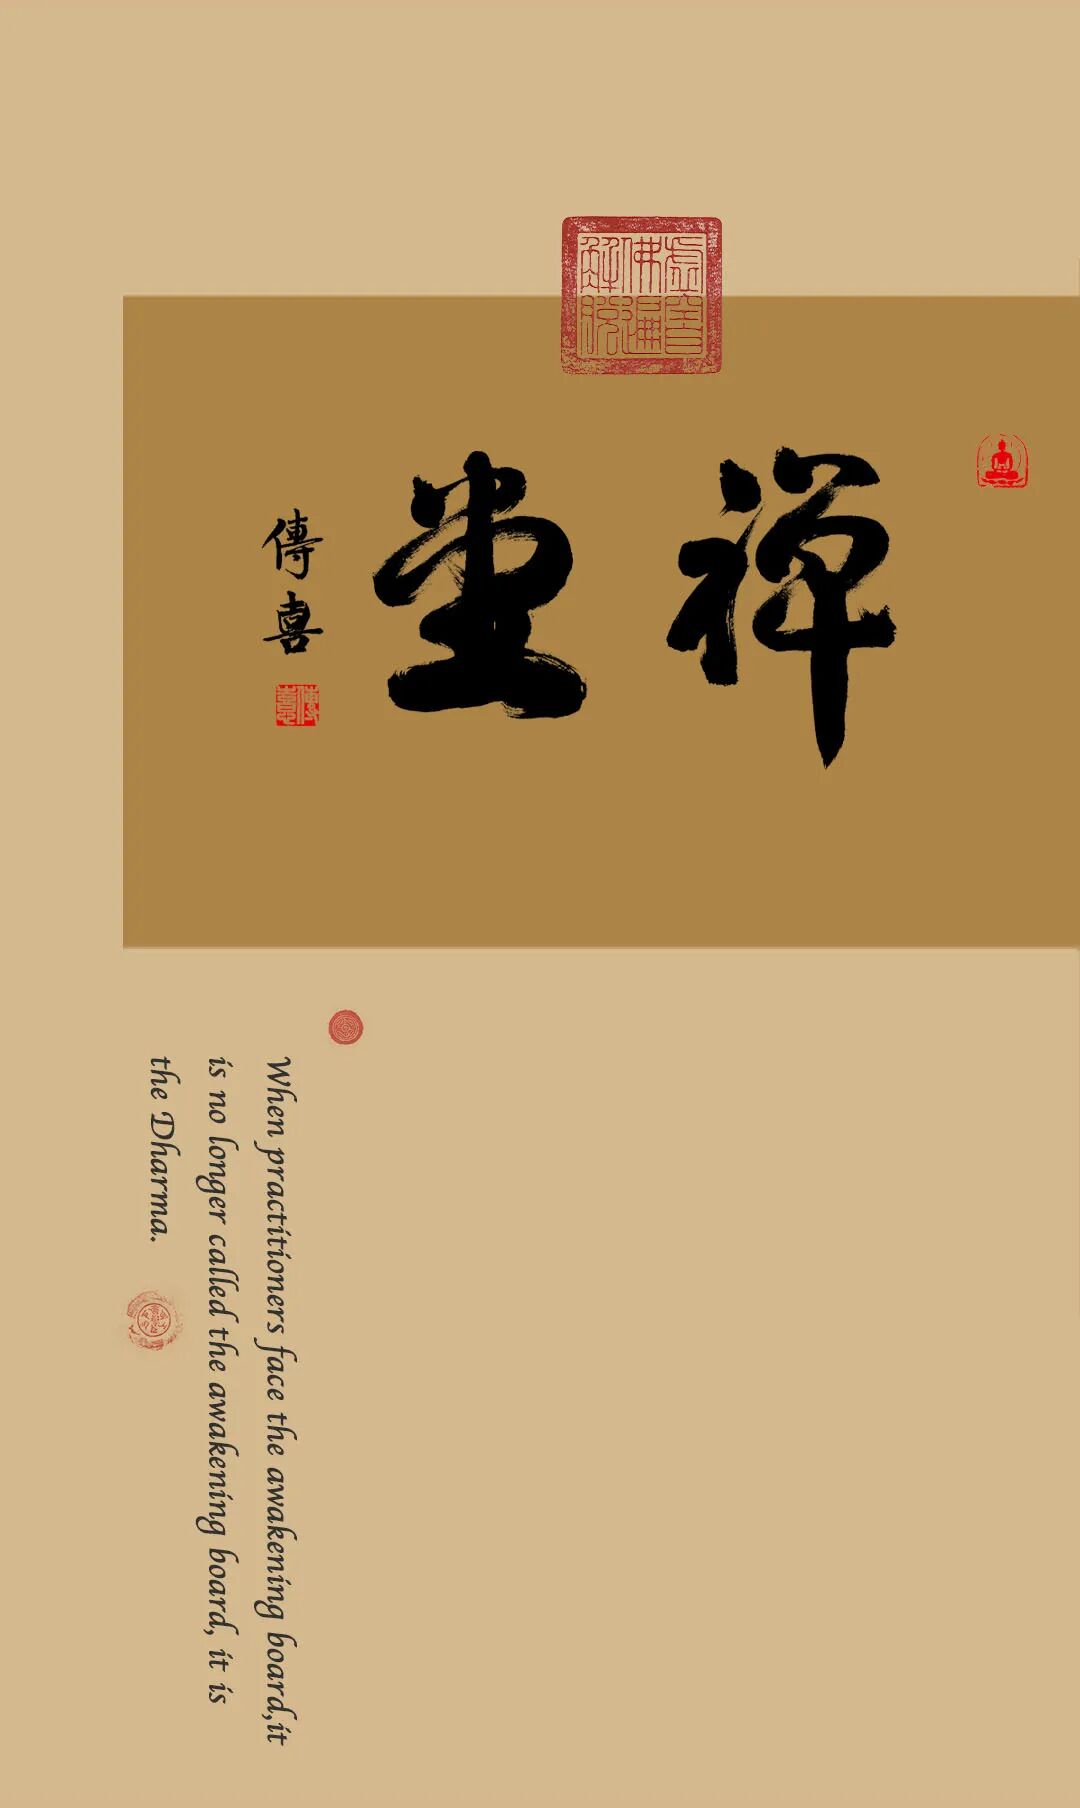 禅堂
傳喜
傳喜
When practitioners face the awakening board,it
is no longer called the awakening board, it is
the Dharma.